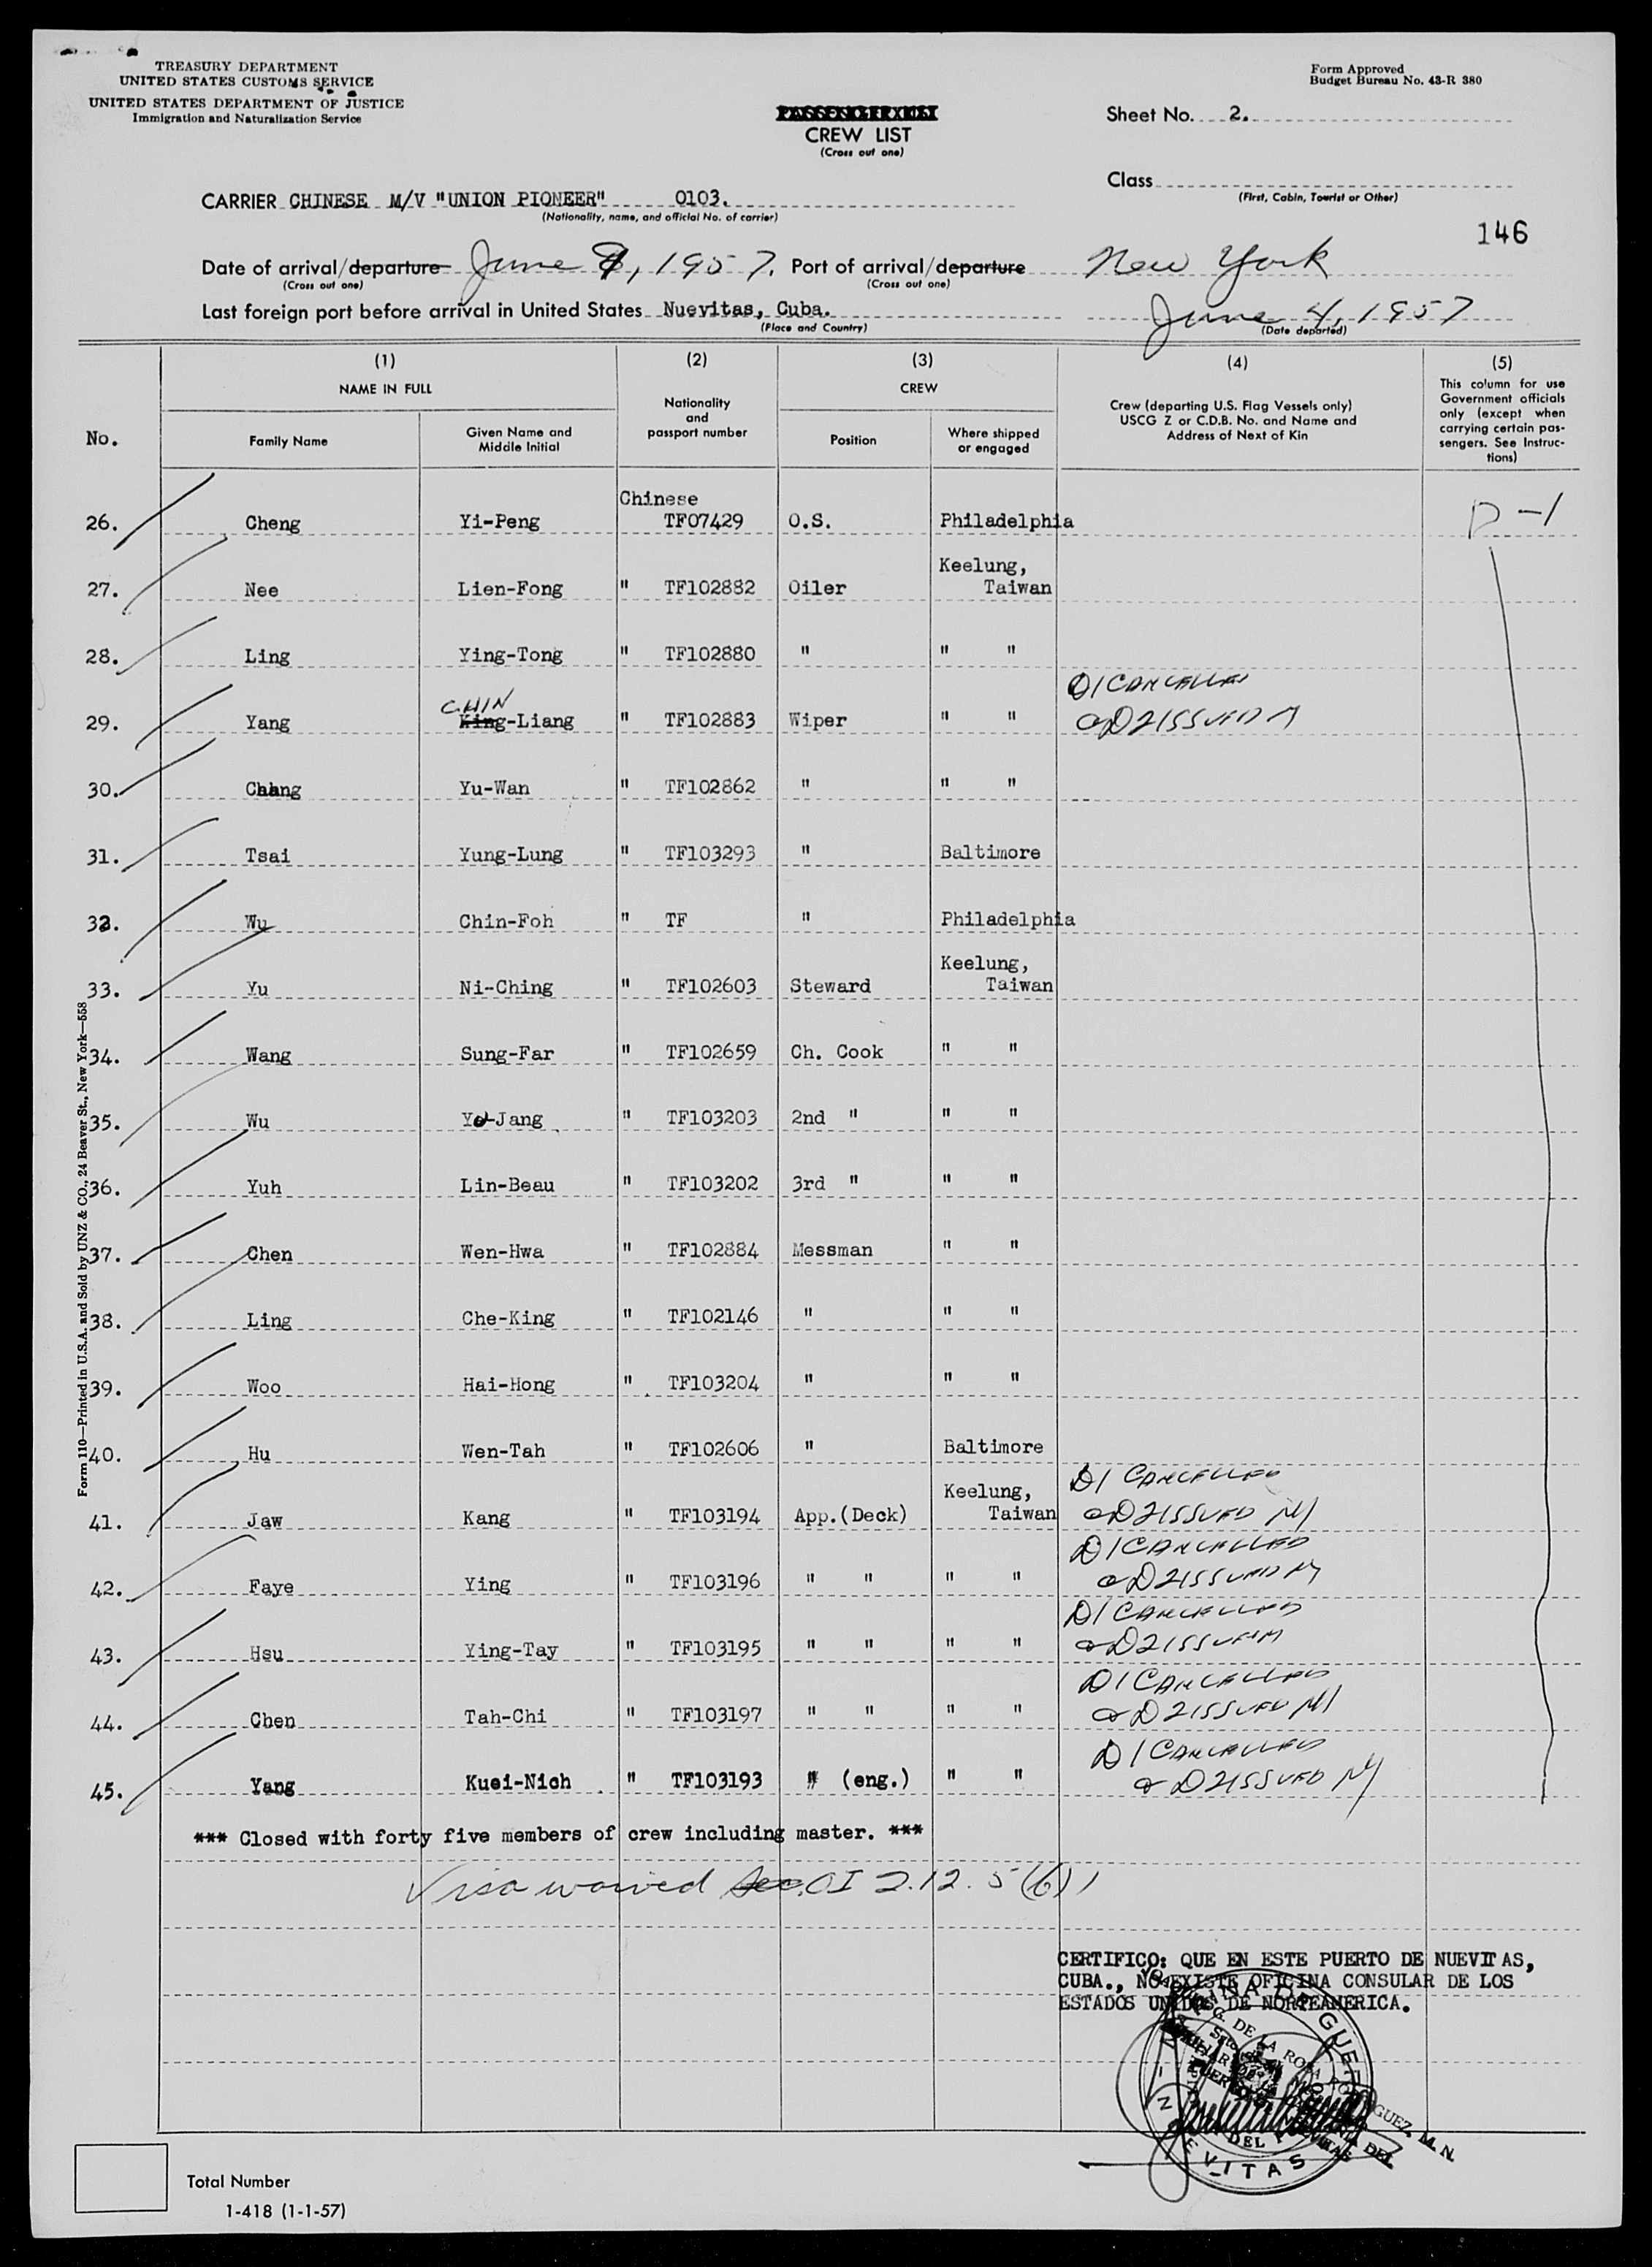 TREASURY DEPARTMENT
UNITED STATES CUSTOMS SERVICE
UNITED STATES DEPARTMENT OF JUSTICE
Immigration and Naturalization Service
Form Approved
Budget Bureau No. 43-R 380
PASSENGER LIST
CREW LIST
(Cross out one)
Sheet No. 2.
Class
(First, Cabin, Tourist or Other)
CARRIER CHINESE M/V "UNION PIONEER" 0103.
(Nationality, name, and official No. of carrier)
146
Date of arrival/departure June 8, 1957. Port of arrival/departure New York
(Cross out one) (Cross out one)
Last foreign port before arrival in United States Nuevitas, Cuba. June 4, 1957
(Place and Country) (Date departed)
(1) (2) (3) (4) (5)
NAME IN FULL
Nationality and passport number
CREW
Crew (departing U.S. Flag Vessels only) USCG Z or C.D.B. No. and Name and Address of Next of Kin
This column for use Government officials only (except when carrying certain passengers. See Instructions)
No. Family Name Given Name and Middle Initial Position Where shipped or engaged
26. Cheng Yi-Peng Chinese TF07429 O.S. Philadelphia D-1
27. Nee Lien-Fong " TF102882 Oiler Keelung, Taiwan
28. Ling Ying-Tong " TF102880 " " "
29. Yang CHIN King-Liang " TF102883 Wiper " " D1 CANCELLED & D2 ISSUED
30. Chang Yu-Wan " TF102862 " " "
31. Tsai Yung-Lung " TF103293 " Baltimore
32. Wu Chin-Foh " TF " Philadelphia
33. Yu Ni-Ching " TF102603 Steward Keelung, Taiwan
34. Wang Sung-Far " TF102659 Ch. Cook " "
35. Wu Yu-Jang " TF103203 2nd " " "
36. Yuh Lin-Beau " TF103202 3rd " " "
37. Chen Wen-Hwa " TF102884 Messman " "
38. Ling Che-King " TF102146 " " "
39. Woo Hai-Hong " TF103204 " " "
40. Hu Wen-Tah " TF102606 " Baltimore
41. Jaw Kang " TF103194 App.(Deck) Keelung, Taiwan D1 CANCELLED & D2 ISSUED
42. Faye Ying " TF103196 " " " " D1 CANCELLED & D2 ISSUED
43. Hsu Ying-Tay " TF103195 " " " " D1 CANCELLED & D2 ISSUED
44. Chen Tah-Chi " TF103197 " " " " D1 CANCELLED & D2 ISSUED
45. Yang Kuei-Nich " TF103193 " (eng.) " " D1 CANCELLED & D2 ISSUED
*** Closed with forty five members of crew including master. ***
Visa waived Sec. OI 212.5(b)1
CERTIFICO: QUE EN ESTE PUERTO DE NUEVITAS,
CUBA., NO EXISTE OFICINA CONSULAR DE LOS
ESTADOS UNIDOS DE NORTEAMERICA.
Total Number
1-418 (1-1-57)
Form 110—Printed in U.S.A. and Sold by UNZ & CO., 24 Beaver St., New York—558